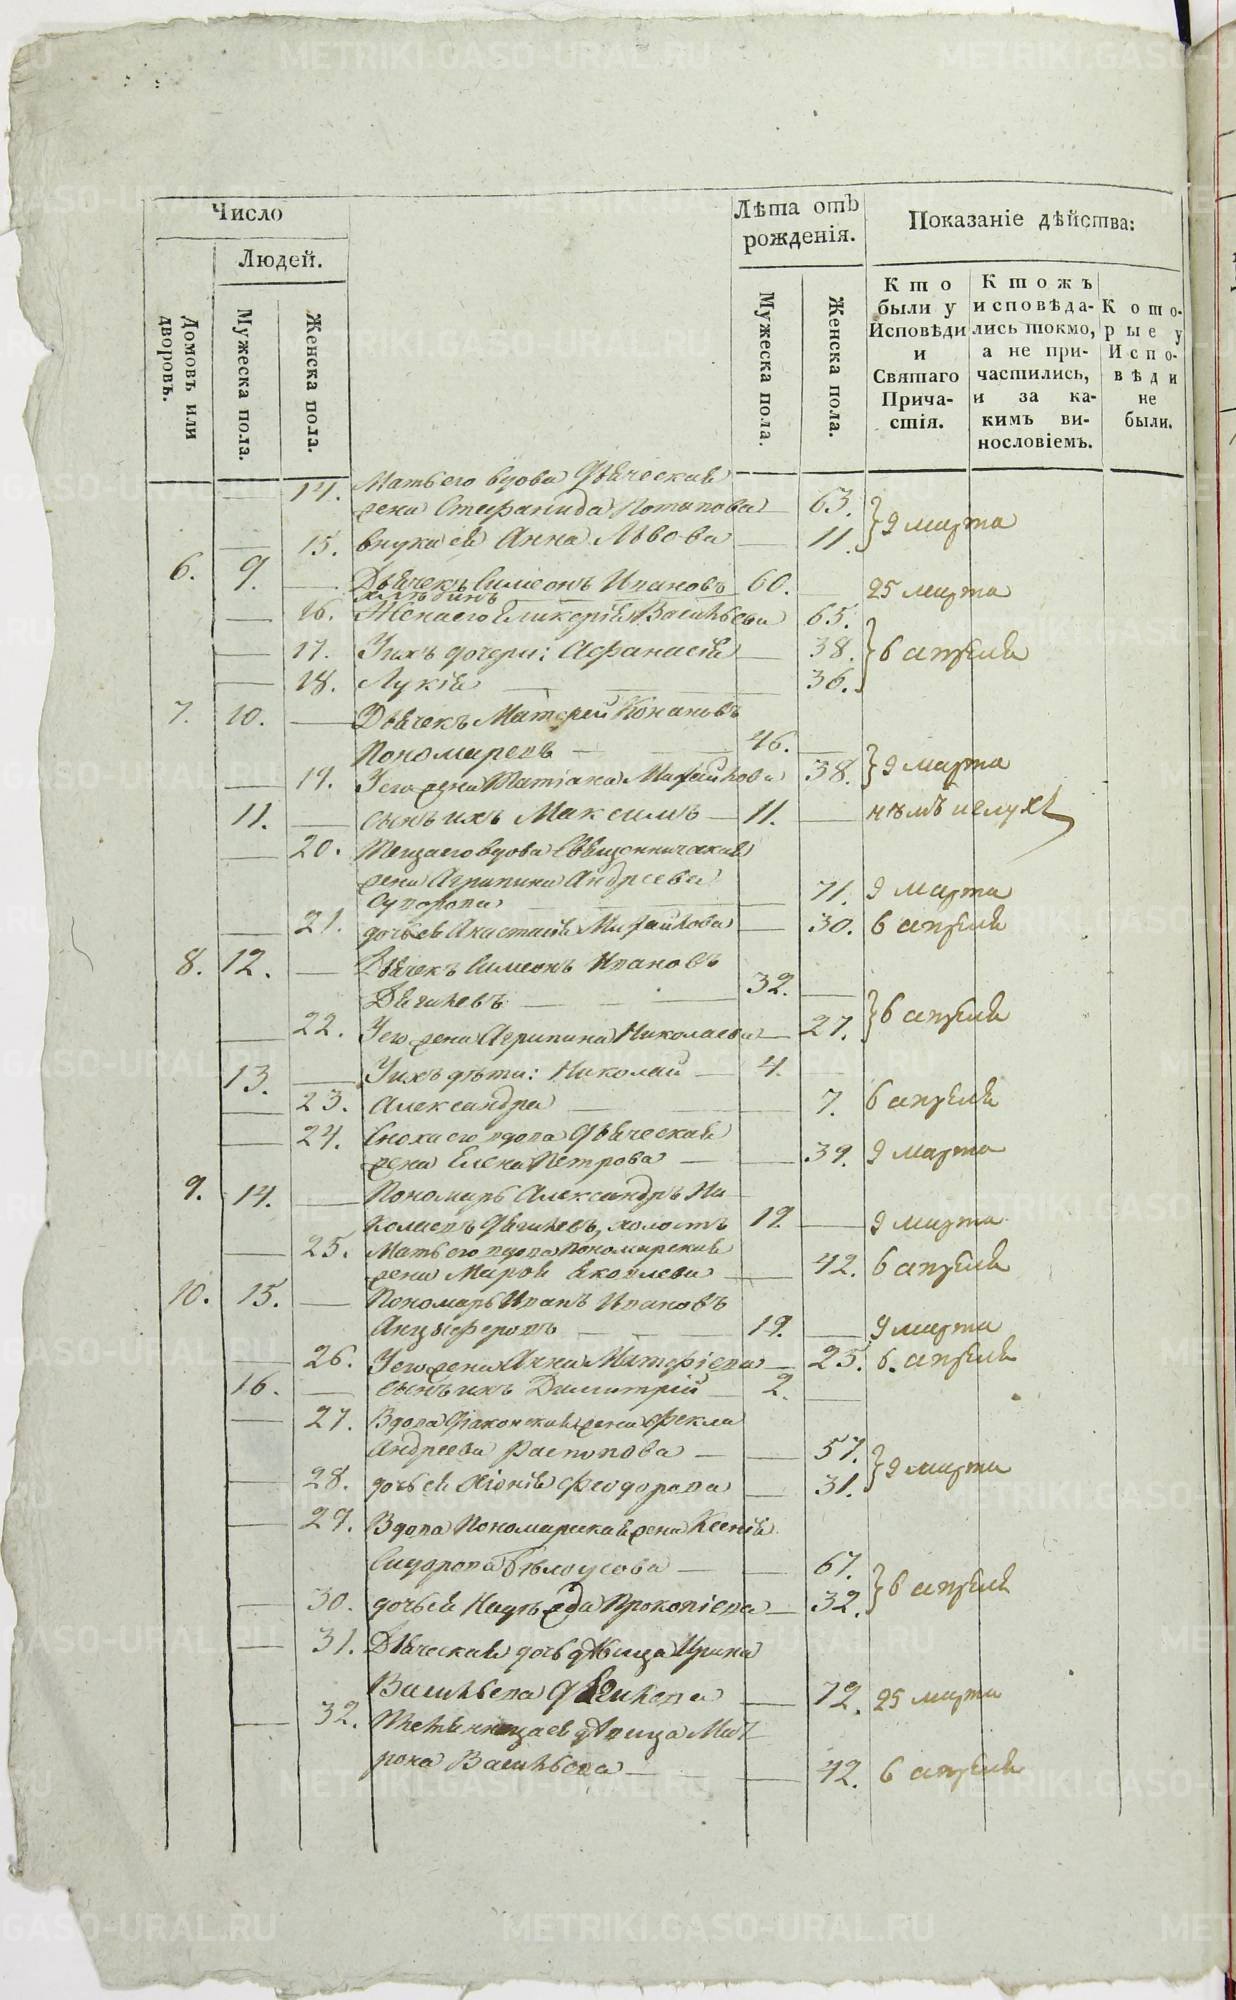 Число
Людей.
Домовъ или дворовъ.
Мужеска пола.
Женска пола.
Лѣта отъ рожденія.
Мужеска пола.
Женска пола.
Показаніе дѣйства:
Кто были у Исповѣди и Святаго Причастія.
Ктожъ исповѣдались токмо, а не причастились, и за какимъ винословіемъ.
Которые у Исповѣди не были.
14. Мать его вдова Дьяческая
жена Стефанида Потапова 63. } 9 марта
15. внука ея Анна Львова 11.
6. 9. Дьячекъ Симеонъ Ивановъ 60. 25 марта
16. Жена его Гликерія Васильева 65.
17. У ихъ дочери: Афанасія 38. } 6 апреля
18. Лукія 36.
7. 10. Дьячекъ Матфей Конановъ
Пономаревъ 46.
19. У его жена Татіана Михайлова 38. } 9 марта
11. сынъ ихъ Максимъ 11. нѣмъ и глухъ
20. Теща его вдова Священническая
жена Агрипина Андреева 71. 9 марта
Суторова
21. дочь ея Анастасія Михайлова 30. 6 апреля
8. 12. Дьячекъ Симеонъ Ивановъ
Дягилевъ 32.
22. У его жена Агрипина Николаева 27. } 6 апреля
13. У ихъ дѣти: Николай 4.
23. Александра 7. 6 апреля
24. Сноха его вдова Дьяческая
жена Елена Петрова 39. 9 марта
9. 14. Пономарь Александръ Ни
колаевъ Дягилевъ, холостъ 19. 9 марта
25. Мать его вдова Пономарская
жена Марфа Яковлева 42. 6 апреля
10. 15. Пономарь Иванъ Ивановъ
Анцыферовъ 19. 9 марта
26. У его жена Анна Матфіева 25. 6. апреля
16. сынъ ихъ Димитрій 2.
27. Вдова Діаконская жена Фекла
Андреева Распопова 57. } 9 марта
28. дочь ея Хіонія Феодорова 31.
29. Вдова Пономарская жена Ксенія
Сидорова Бѣлоусова 67.
30. дочь ея Надѣжда Прокопіева 32. } 6 апреля
31. Дьяческая дочь дѣвица Ирина
Васильева Дягилева 72. 25 марта
32. дѣвица Мат
рона Васильева 42. 6 апреля
METRIKI.GASO-URAL.RU